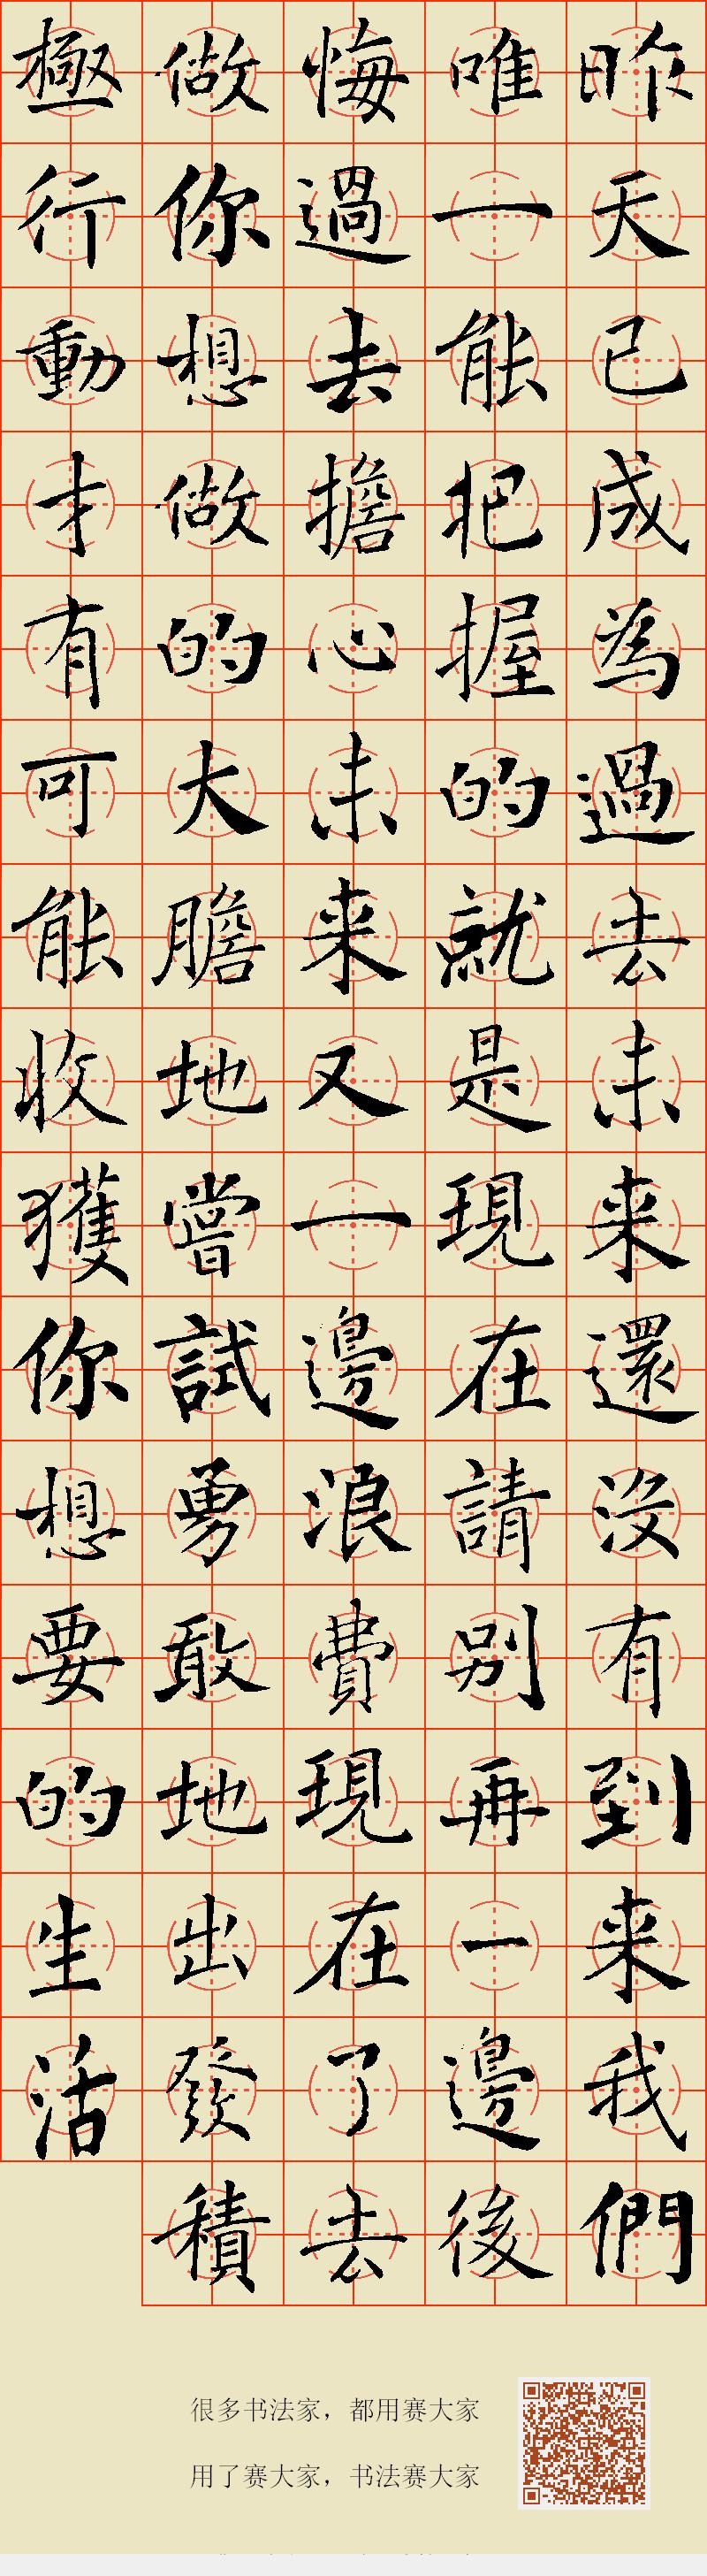 昨天已成為過去未来還沒有到来我們
唯一能把握的就是現在請别再一邊後
悔過去擔心未来又一邊浪費現在了去
做你想做的大膽地嘗試勇敢地出發積
極行動才有可能收獲你想要的生活
很多书法家，都用赛大家
用了赛大家，书法赛大家